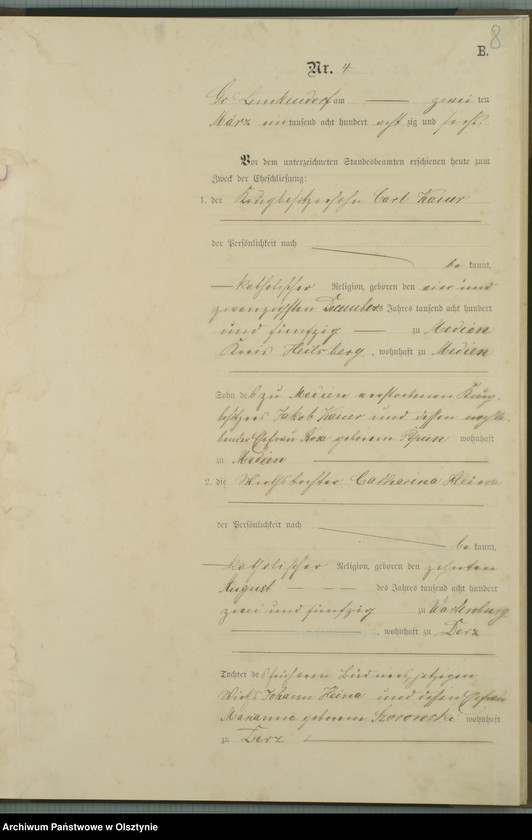 8
B.
Nr. 4
Gr Lemkendorf am — zwei ten
März ein tausend acht hundert acht zig und sechs.
Vor dem unterzeichneten Standesbeamten erschienen heute zum
Zweck der Eheschließung:
1. der Krugbesitzersohn Carl
der Persönlichkeit nach
be kannt,
katholischer Religion, geboren den ein und
zwanzigsten December des Jahres tausend acht hundert
und fünfzig — zu Medien
Kreis Heilsberg, wohnhaft zu Medien
Sohn des zu Medien verstorbenen Krug-
besitzers Jakob und dessen noch le-
benden Ehefrau Rosa geborenen wohnhaft
zu Medien
2. die Wirthstochter Catharina Heina
der Persönlichkeit nach
be kannt,
katholischer Religion, geboren den zehnten
August — — des Jahres tausend acht hundert
zwei und fünfzig zu Wartenburg
, wohnhaft zu Derz
Tochter des früheren Büdners, jetzigen
Wirths Johann Heina und dessen Ehefrau
Marianna geborenen wohnhaft
zu Derz
Archiwum Państwowe w Olsztynie